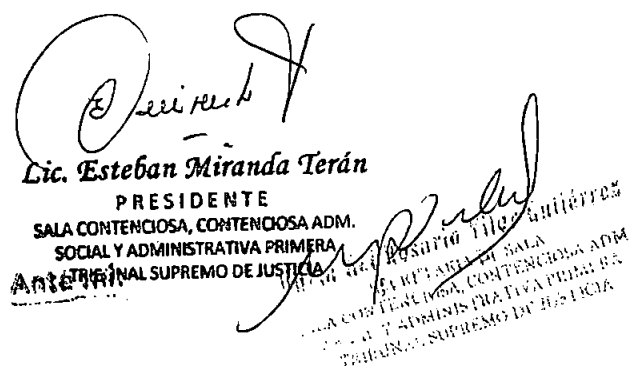 Lic. Esteban Miranda Terán
PRESIDENTE
SALA CONTENCIOSA, CONTENCIOSA ADM.
SOCIAL Y ADMINISTRATIVA PRIMERA
TRIBUNAL SUPREMO DE JUSTICIA
Ante
Rosario Gutiérrez
SECRETARIA DE SALA
SALA CONTENCIOSA, CONTENCIOSA ADM
Y ADMINISTRATIVA PRIMERA
TRIBUNAL SUPREMO DE JUSTICIA